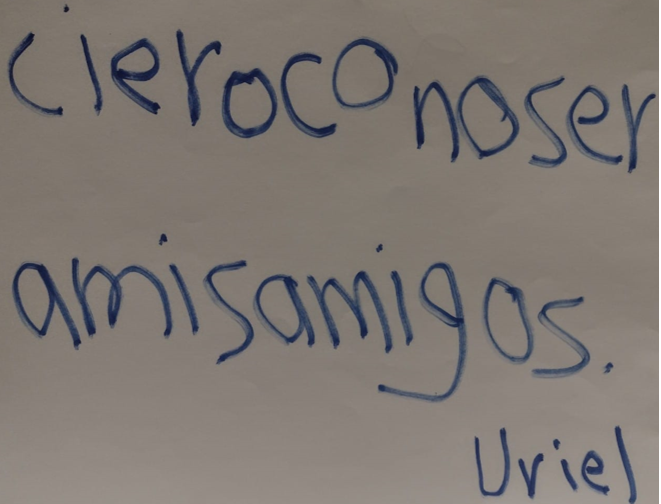 cieroconoser
amisamigos.
Uriel